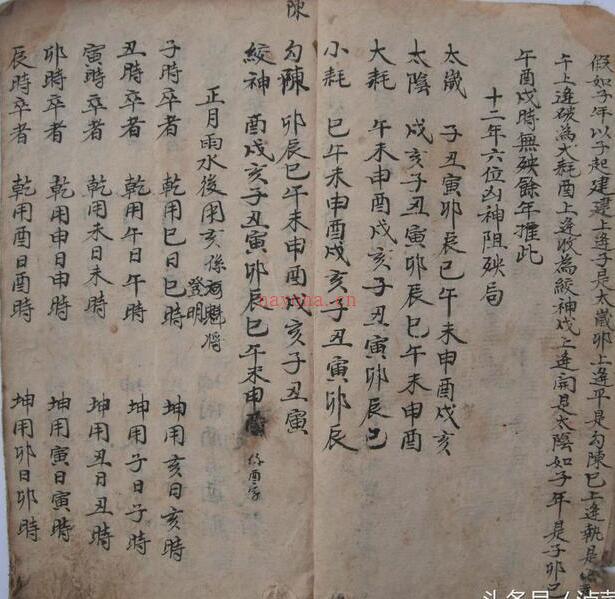 假如子年以子起建建上逢子是太歲卯上逢平是勾陳巳上逢執是
午上逢破為大耗酉上逢收為絞神戌上逢開是太陰如子年是子卯巳
午酉戌時無殃餘年推此
十二年六位凶神阻殃局
太歲 子丑寅卯辰巳午未申酉戌亥
太陰 戌亥子丑寅卯辰巳午未申酉
大耗 午未申酉戌亥子丑寅卯辰巳
小耗 巳午未申酉戌亥子丑寅卯辰
陳
勾陳 卯辰巳午未申酉戌亥子丑寅
絞神 酉戌亥子丑寅卯辰巳午未申
正月雨水後用亥係河魁將
登明
子時卒者 乾用巳日巳時 坤用亥日亥時
丑時卒者 乾用午日午時 坤用子日子時
寅時卒者 乾用未日未時 坤用丑日丑時
卯時卒者 乾用申日申時 坤用寅日寅時
辰時卒者 乾用酉日酉時 坤用卯日卯時
nayona.cn